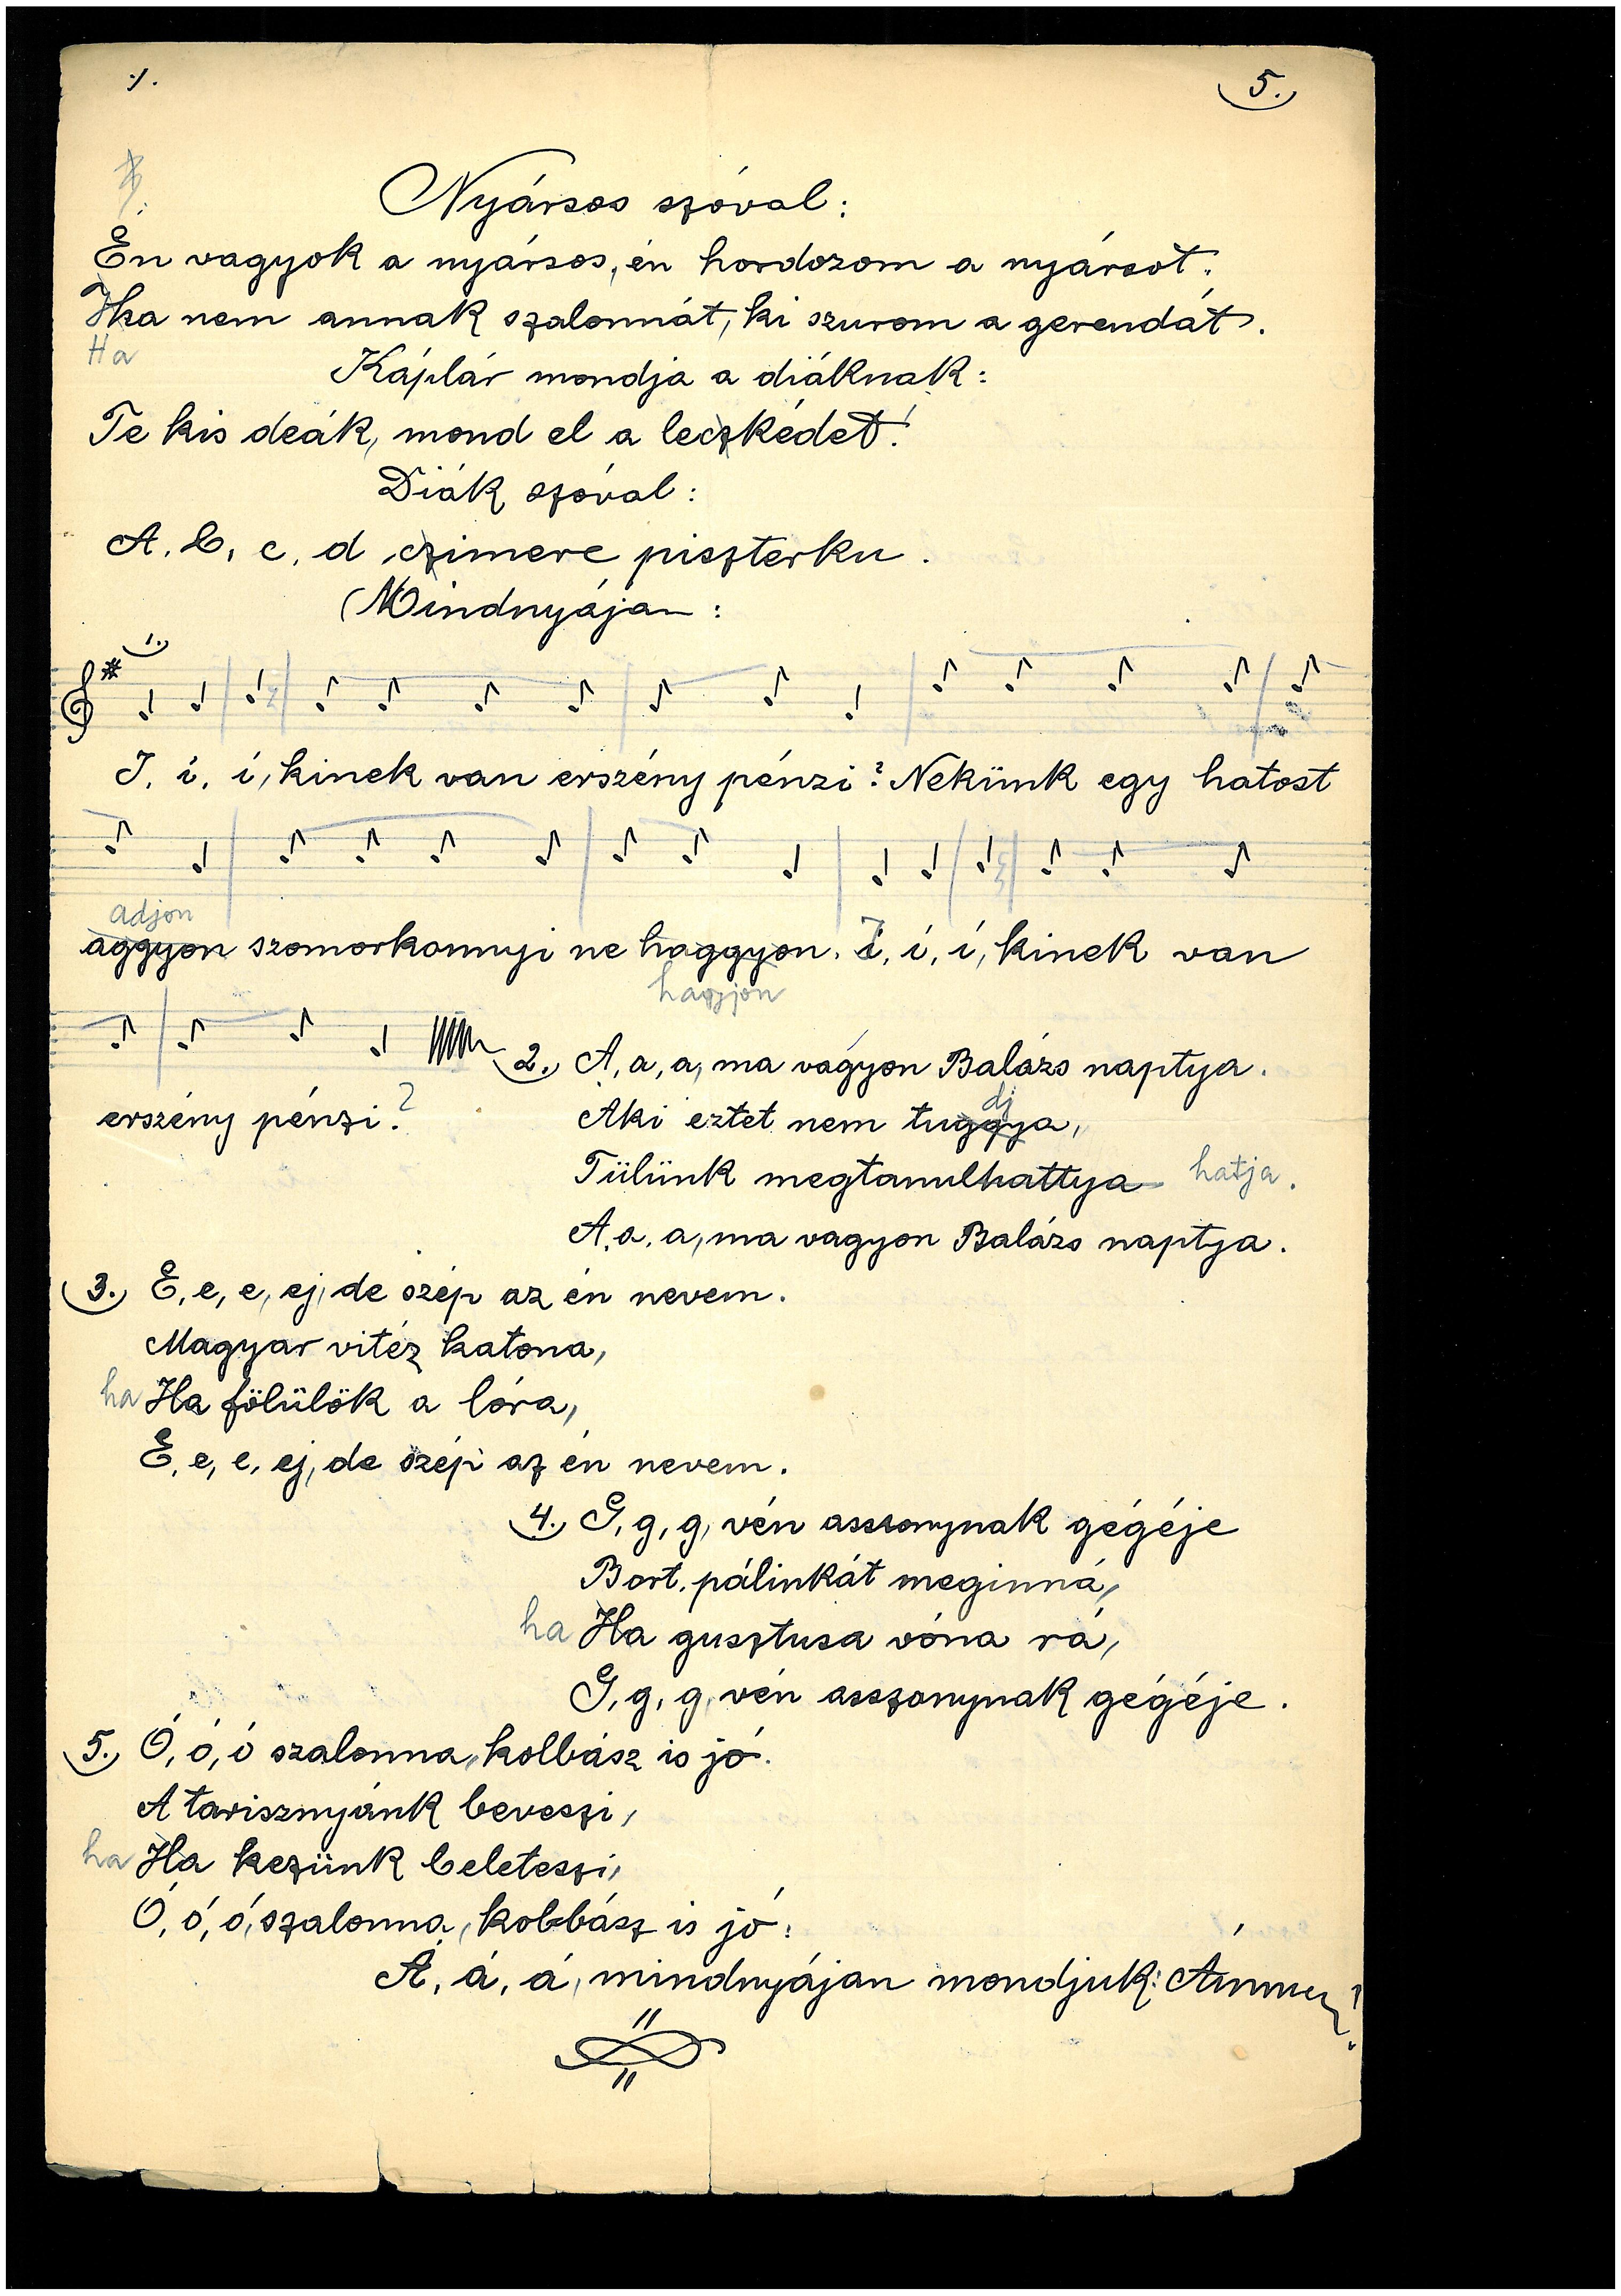 ·/.
5.
Nyársos szóval:
Én vagyok a nyársos, én hordozom a nyársot.
Ha nem annak szalonnát, ki szurom a gerendát.
Ha
Káplár mondja a diáknak:
Te kis deák, mond el a leczkédet!
Diák szóval:
A, b, c, d, czimere piszterku.
(Mindnyájan:
1.
I, í, í, kinek van erszény pénzi? Nekünk egy hatost
adjon
aggyon szomorkonnyi ne haggyon. I, í, í, kinek van
hagyjon
erszény pénzi?
2. A, a, a, ma vagyon Balázs naptya.
dj
Aki eztet nem tuggya,
Tülünk megtanulhattya hatja.
A, a, a, ma vagyon Balázs naptya.
3. E, e, e, ej, de szép az én nevem.
Magyar vitéz katona,
ha Ha fölülök a lóra,
E, e, e, ej, de szép az én nevem.
4. G, g, g, vén asszonynak gégéje
Bort, pálinkát meginná,
ha Ha gusztusa vóna rá,
G, g, g, vén asszonynak gégéje.
5. Ó, ó, ó szalonna, kolbász is jó.
A tarisznyánk beveszi,
ha Ha kezünk beleteszi,
Ó, ó, ó, szalonna, kobbász is jó:
Á, á, á, mindnyájan mondjuk: Ámmen!